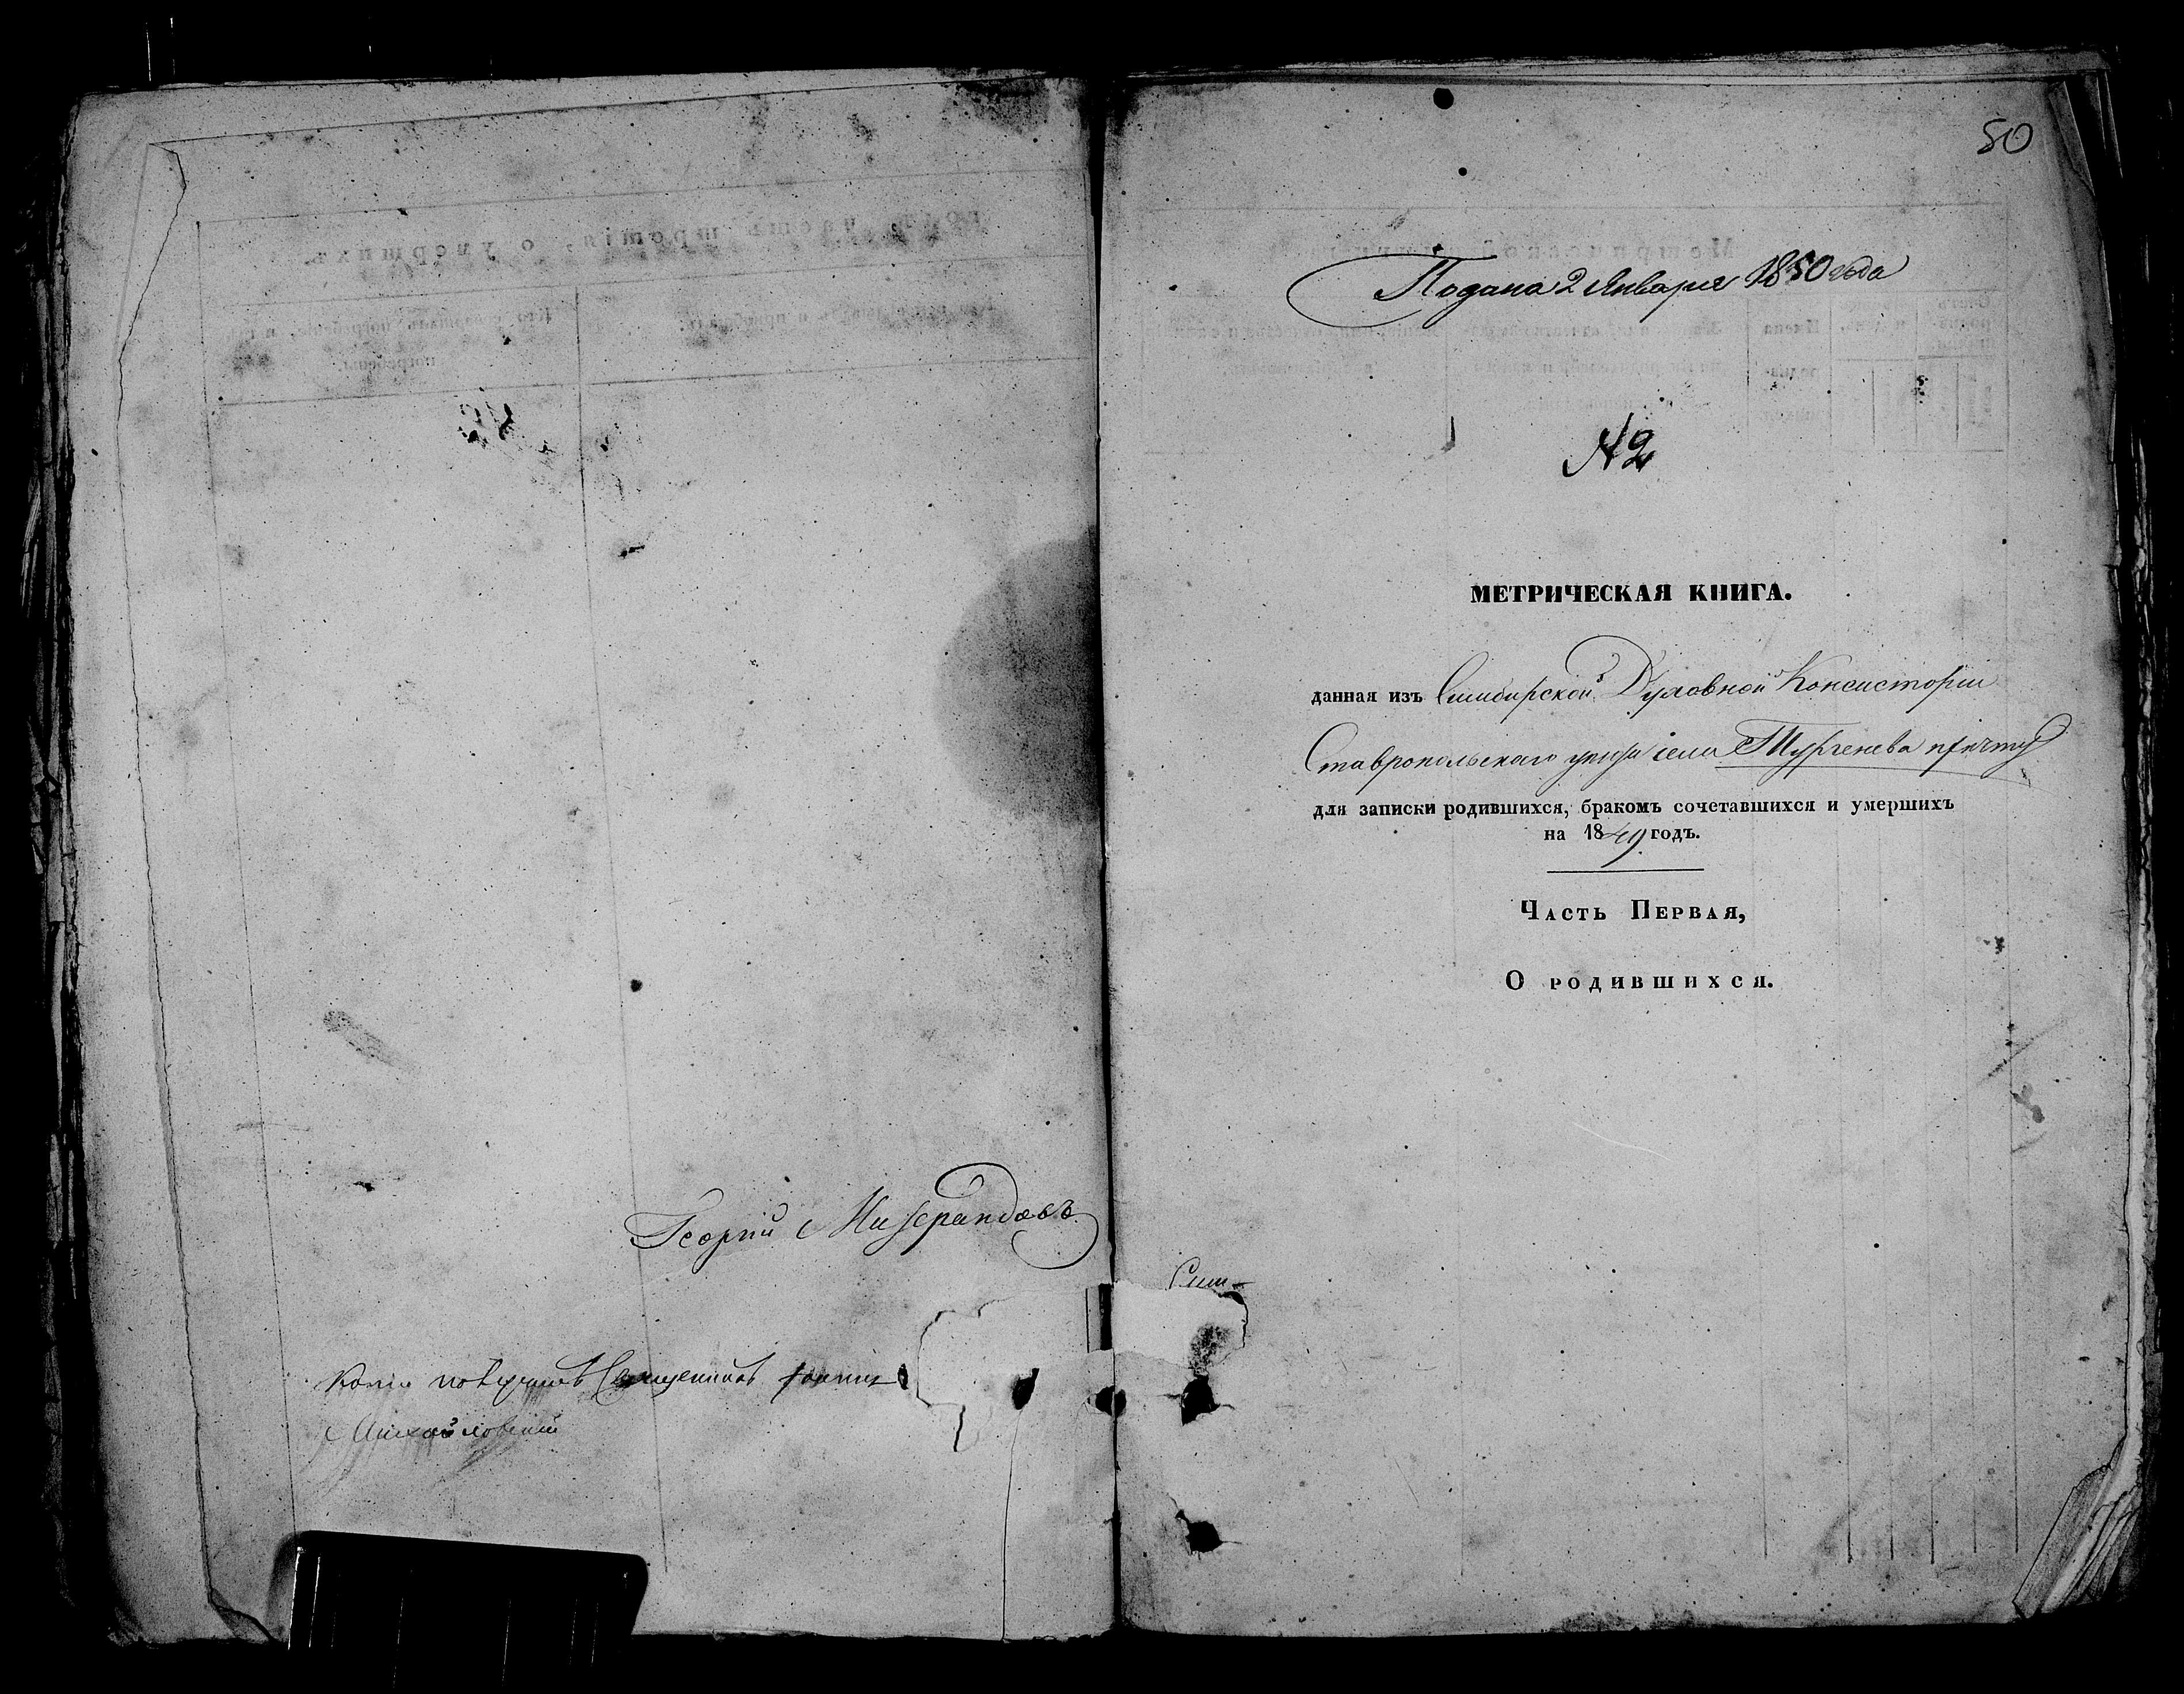 Георгій Мизерандовъ
Копію повѣрялъ Священникъ Іоаннъ
Михайловскій
50
Подана 2 Января 1850 года
№ 2
МЕТРИЧЕСКАЯ КНИГА.
данная изъ Симбирской Духовной Консисторіи
Ставропольскаго уѣзда села Тургенева причту
для записки родившихся, бракомъ сочетавшихся и умершихъ
на 1849 годъ.
Часть Первая,
О родившихся.
Сим-